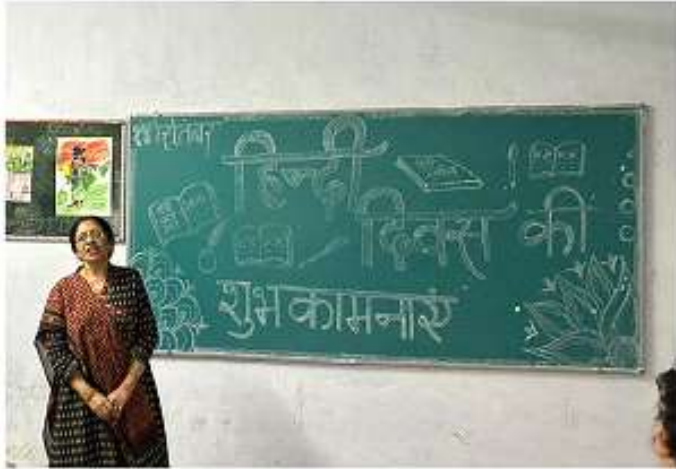 हिन्दी
दिवस की
शुभकामनाएं